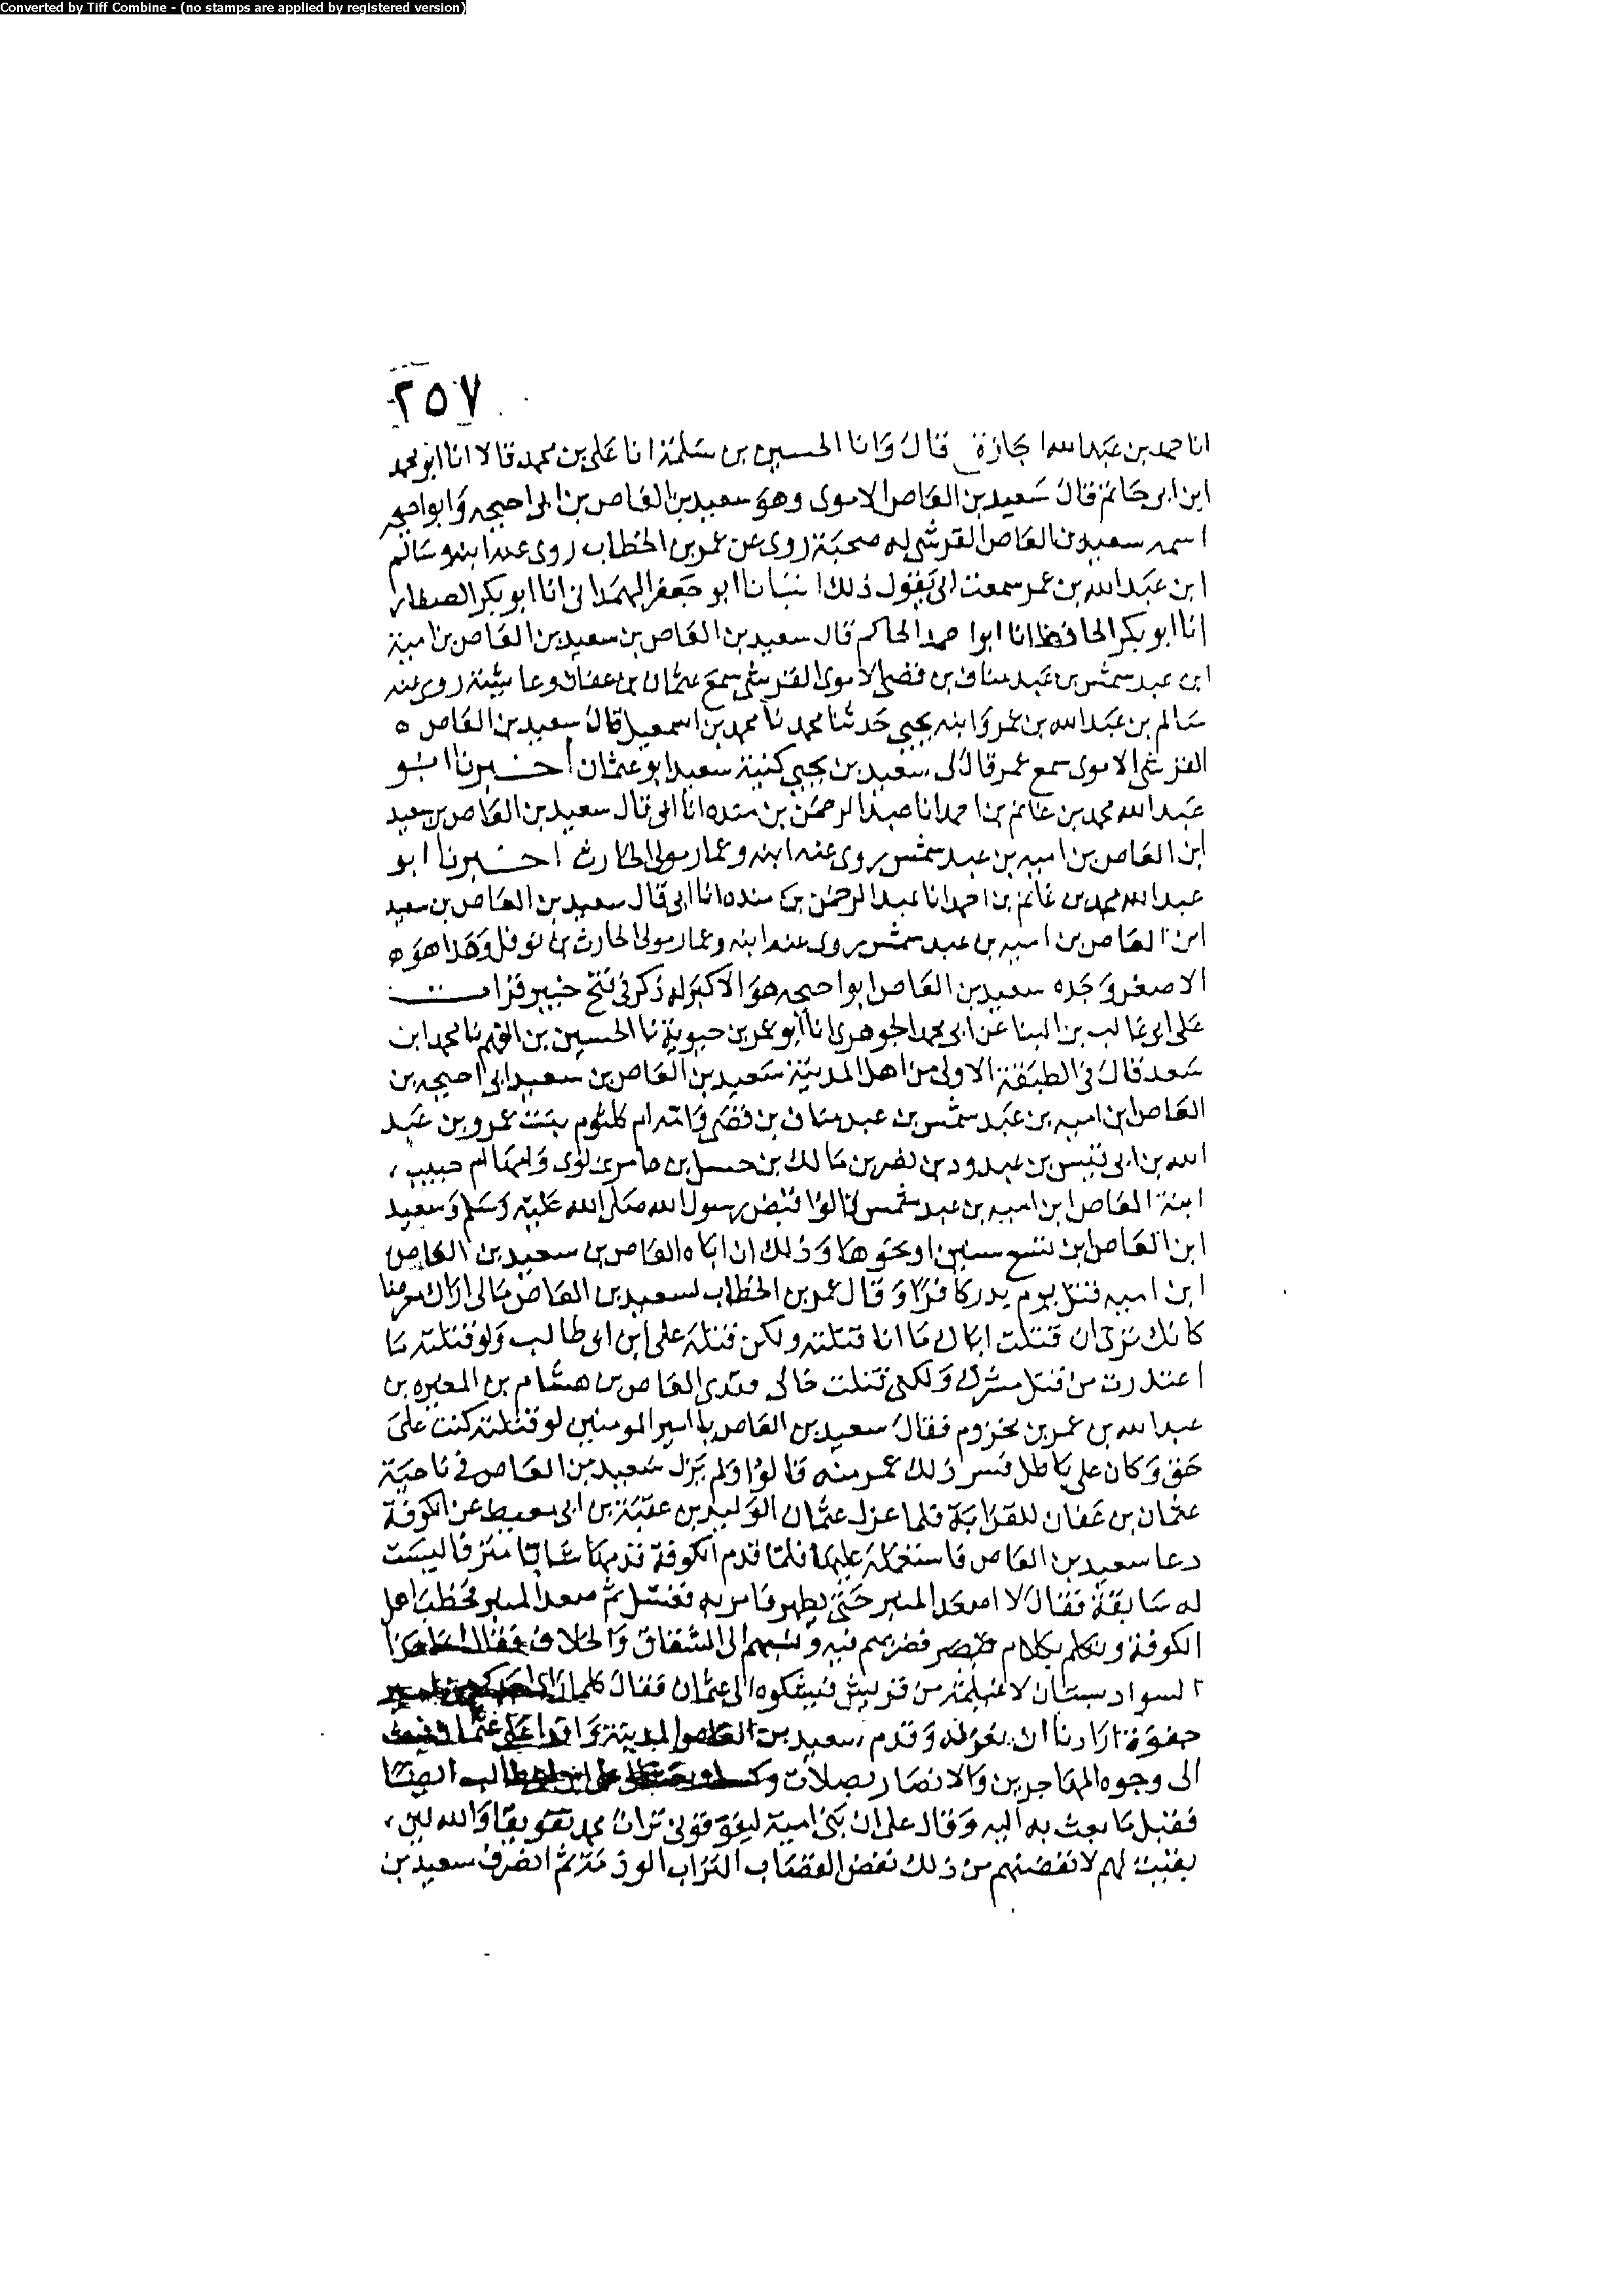 Converted by Tiff Combine - (no stamps are applied by registered version)
٢٥٧
انا حمد بن عبد الله اجازة قال وانا الحسين بن سلمة انا علي بن محمد قالا انا ابو محمد
ابن ابي حاتم قال سعيد بن العاص الاموي وهو سعيد بن العاص بن ابي احيحه وابو احيحه
اسمه سعيد بن العاص القرشي له صحبة روى عن عمر بن الخطاب روى عنه ابنه وسالم
ابن عبد الله بن عمر سمعت ابي يقول ذلك انبانا ابو جعفر الهمداني انا ابو بكر الصفار
انا ابو بكر الحافظ انا ابو احمد الحاكم قال سعيد بن العاص بن سعيد بن العاص بن امية
ابن عبد شمس بن عبد مناف بن قصي الاموي القرشي سمع عثمان بن عفان وعايشة روى عنه
سالم بن عبد الله بن عمر وابنه يحيى حدثنا محمد نا محمد بن اسمعيل قال سعيد بن العاص ه
القرشي الاموي سمع عمر قال لي سعيد بن يحيى كنية سعيد ابو عثمان اخبرنا ابو
عبد الله محمد بن غانم بن احمد انا عبد الرحمن بن منده انا ابي قال سعيد بن العاص بن سعيد
ابن العاص بن اميه بن عبد شمس روى عنه ابنه وعمار مولى الحارث اخبرنا ابو
عبد الله محمد بن غانم بن احمد انا عبد الرحمن بن منده انا ابي قال سعيد بن العاص بن سعيد
ابن العاص بن اميه بن عبد شمس روى عنه ابنه وعمار مولى الحارث بن نوفل وهذا هو ه
الاصغر وجده سعيد بن العاص ابو احيحه هو الاكبر له ذكر في فتح خيبر قرات
على ابي غالب بن البنا عن ابي محمد الجوهري انا ابو عمر بن حيوية نا الحسين بن القهم نا محمد ابن
سعد قال في الطبقة الاولى من اهل المدينة سعيد بن العاص بن سعيد ابي احيحه بن
العاص بن اميه بن عبد شمس بن عبد مناف بن قصي وامه ام كلثوم بنت عمرو بن عبد
الله بن ابي قيس بن عبد ود بن نصر بن مالك بن حسل بن عامر بن لؤى وامها ام حبيب،
ابنة العاص ابن اميه بن عبد شمس قالوا قبض رسول الله صلى الله عليه وسلم وسعيد
ابن العاص ابن تسع سنين او نحوها وذلك ان اباه العاص بن سعيد بن العاص
ابن اميه قتل يوم بدر كافرا وقال عمر بن الخطاب لسعيد بن العاص مالي اراك معرضا
كانك ترى ان قتلت اباك ما انا قتلته ولكن قتله علي ابن ابي طالب ولو قتلته ما
اعتذرت من قتل مشرك ولكني قتلت خالي بيدي العاص بن هشام بن المغيره بن
عبد الله بن عمر بن مخزوم فقال سعيد بن العاص يا امير المومنين لو قتلته كنت على
حق وكان على باطل فسر ذلك عمر منه قالوا ولم يزل سعيد بن العاص في ناحية
عثمان بن عفان للقرابة فلما عزل عثمان الوليد بن عقبة بن ابي معيط عن الكوفة
دعا سعيد بن العاص فاستعمله عليها فلما قدم الكوفة قدمها شابا مترفا ليست
له سابقة فقال لا اصعد المنبر حتى يطهر فامر به فغسل ثم صعد المنبر فخطب اهل
الكوفة وتكلم بكلام قصر فضربهم فيه ونسبهم الى الشقاق والخلاف فقال انما هذا
السواد بستان لاغيلمة من قريش فيشكوه الى عثمان فقال كلما راى احدكم من امير
جفوة ارادنا ان نعزله وقدم سعيد بن العاص المدينة وافدا على عثمان فبعث
الى وجوه المهاجرين والانصار بصلات وكسا وبعث الى علي ابن ابي طالب ايضا
فقبل ما بعث به اليه وقال علي ان بني امية ليفوقوني تراث محمد تفويقا والله لين،
بقيت لهم لانفضنهم من ذلك نفض القصاب التراب الوذمة ثم انصرف سعيد بن